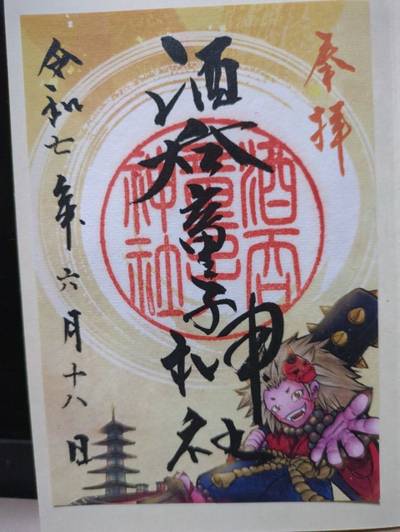 奉拝
酒呑童子神社
酒呑
童子
神社
令和七年六月十八日